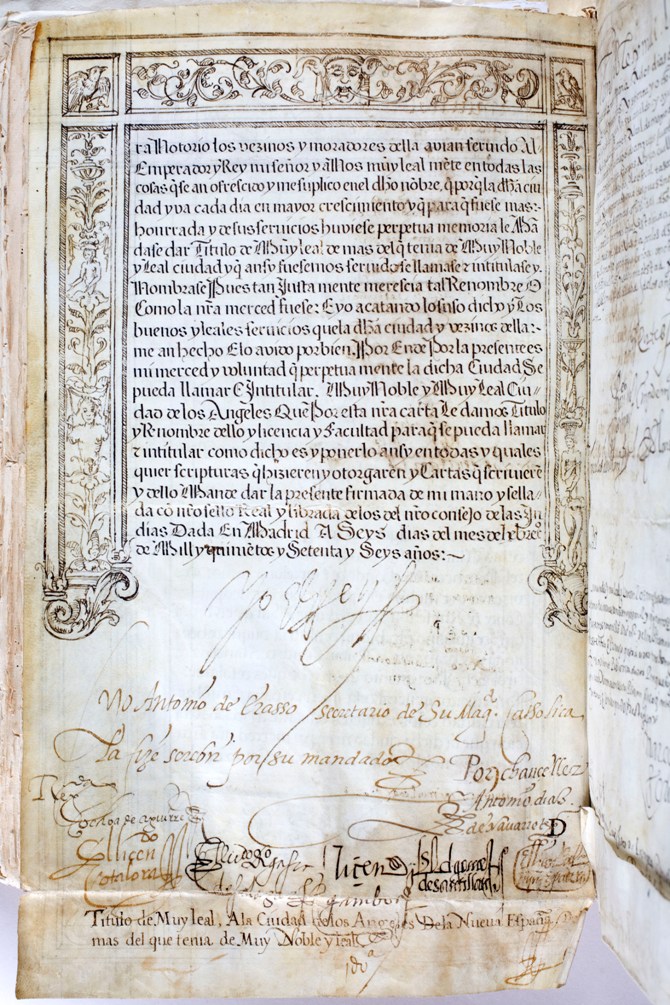 ra Notorio los vezinos y moradores della avian servido Al
Emperador y Rey mi señor y a Nos muy leal mēte en todas las
cosas q̄ se an ofrescido y me suplico en el dho nōbre, q̄ porq̄ la dha ciu
dad yva cada dia en mayor crescimiento y q̄ para q̄ fuese mas
honrrada y de sus servicios huviese perpetua memoria le Mā
dase dar Titulo de Muy leal de mas del q̄ tenia de Muy Noble
y Leal ciudad y q̄ ansy fuesemos servido se llamase e intitulase y
Nombrase Pues tan Justa mente merescia tal Renombre O
Como la nrā merced fuese: E yo acatando lo suso dicho y Los
buenos y leales servicios que la dha ciudad y vezinos della
me an hecho E lo avido por bien. Por Ende Por la presente es
mi merced y voluntad q̄ perpetua mente la dicha Ciudad Se
pueda llamar E Intitular. Muy Noble y Muy Leal Ciu
dad de los Angeles Que Por esta nrā carta Le damos Titulo
y Renombre dello y licencia y Facultad para q̄ se pueda llamar
e intitular como dicho es y ponerlo ansy en todas y quales
quier scripturas q̄ hizieren y otorgaren y Cartas q̄ scriviere
y dello Mande dar la presente firmada de mi mano y sella
da cō nrō sello Real y librada de los del nrō consejo de las In
dias Dada En Madrid A Seys dias del mes de hebrero
de Mill y quiniētos y Setenta y Seys años:~
Yo El Rey
Yo Antonio de Erasso secretario de Su Magᵈ Catholica
la fize screvir por su mandado
Por chanceller
Antonio dias
de navarrete
El licenᵈᵒ
otalora
Titulo de Muy leal, A la Ciudad de los Angeles De la Nueva España
mas del que tenia de Muy Noble y leal